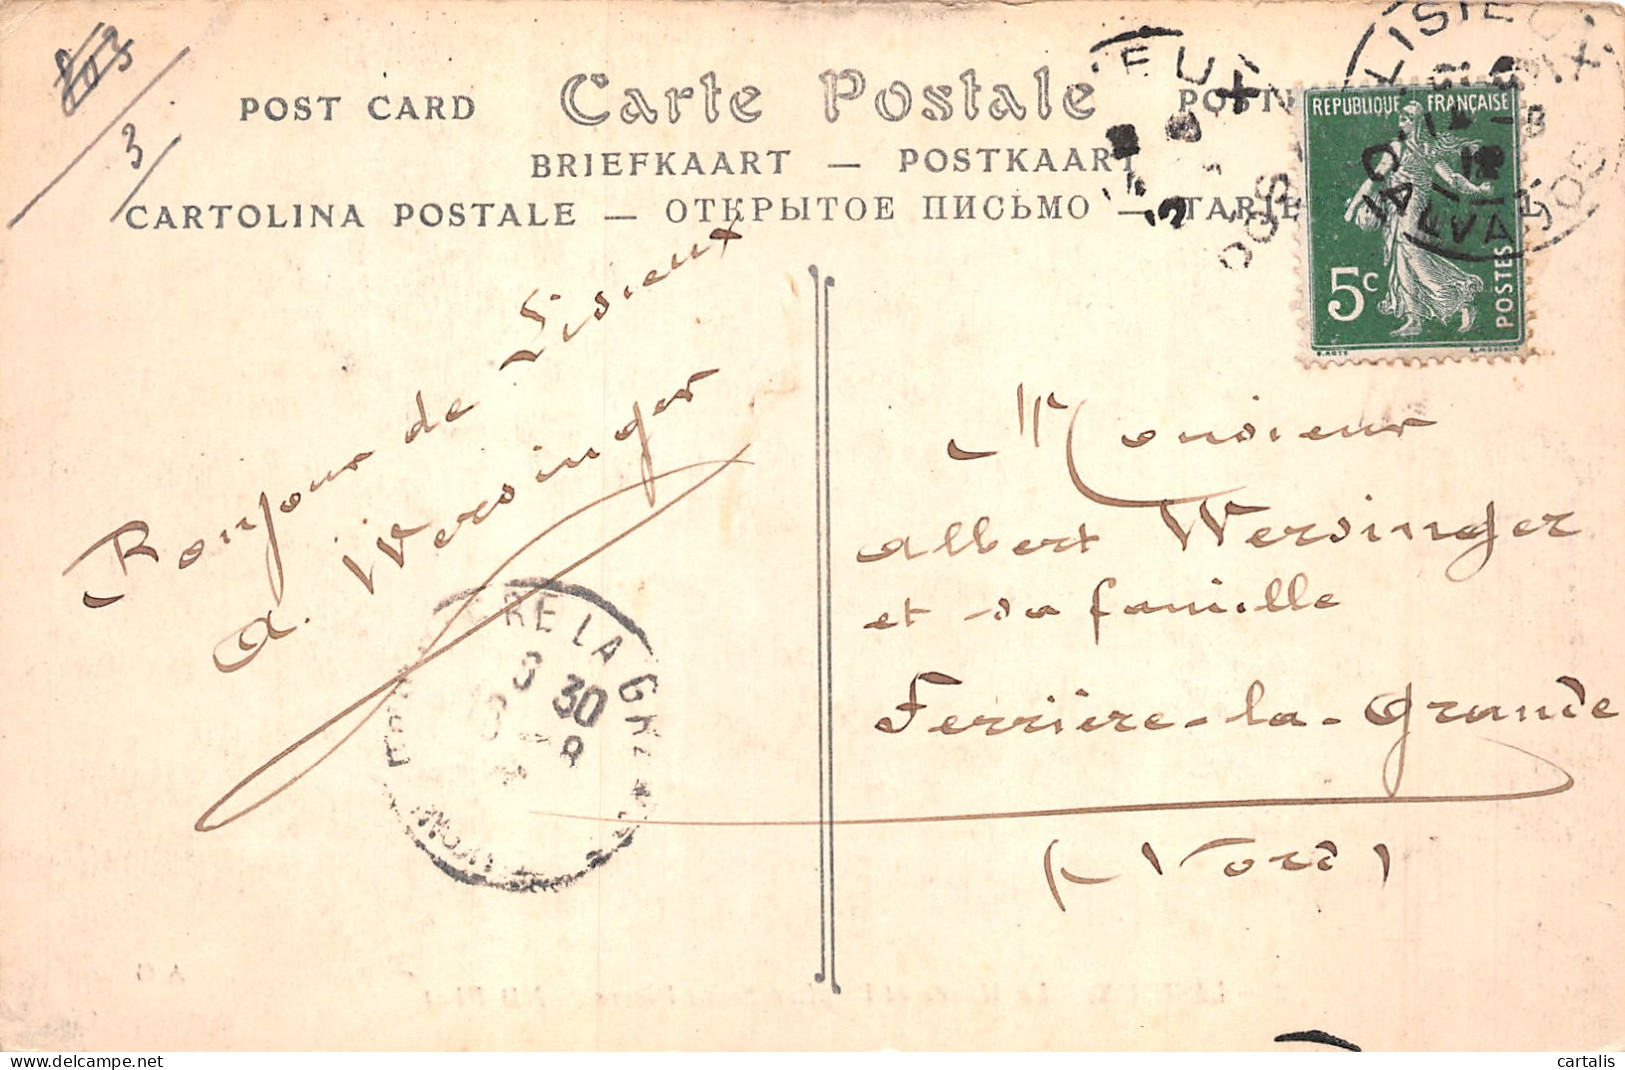 POST CARD Carte Postale
BRIEFKAART — POSTKAART
CARTOLINA POSTALE — ОТКРЫТОЕ ПИСЬМО —
REPUBLIQUE FRANÇAISE
5c
POSTES
LISIEUX
3
Bonjour de Lisieux
A. Wersinger
Monsieur
Albert Wersinger
et sa famille
Ferrière-la-Grande
(Nord)
RE LA GR
30
cartalis